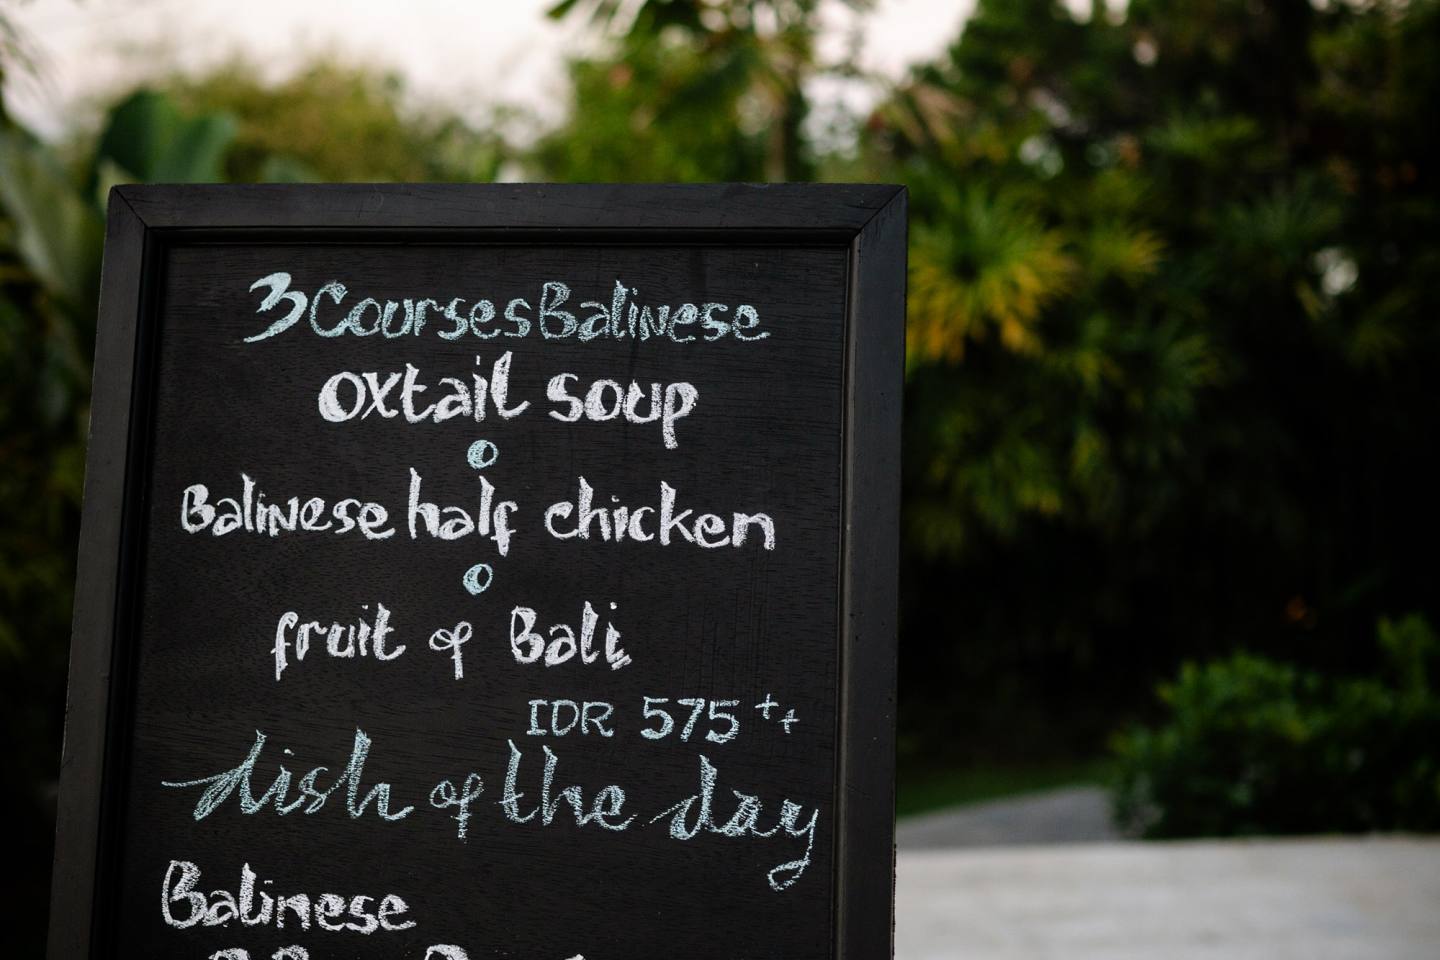 3 Courses Balinese
oxtail soup
Balinese half chicken
fruit of Bali
IDR 575++
dish of the day
Balinese